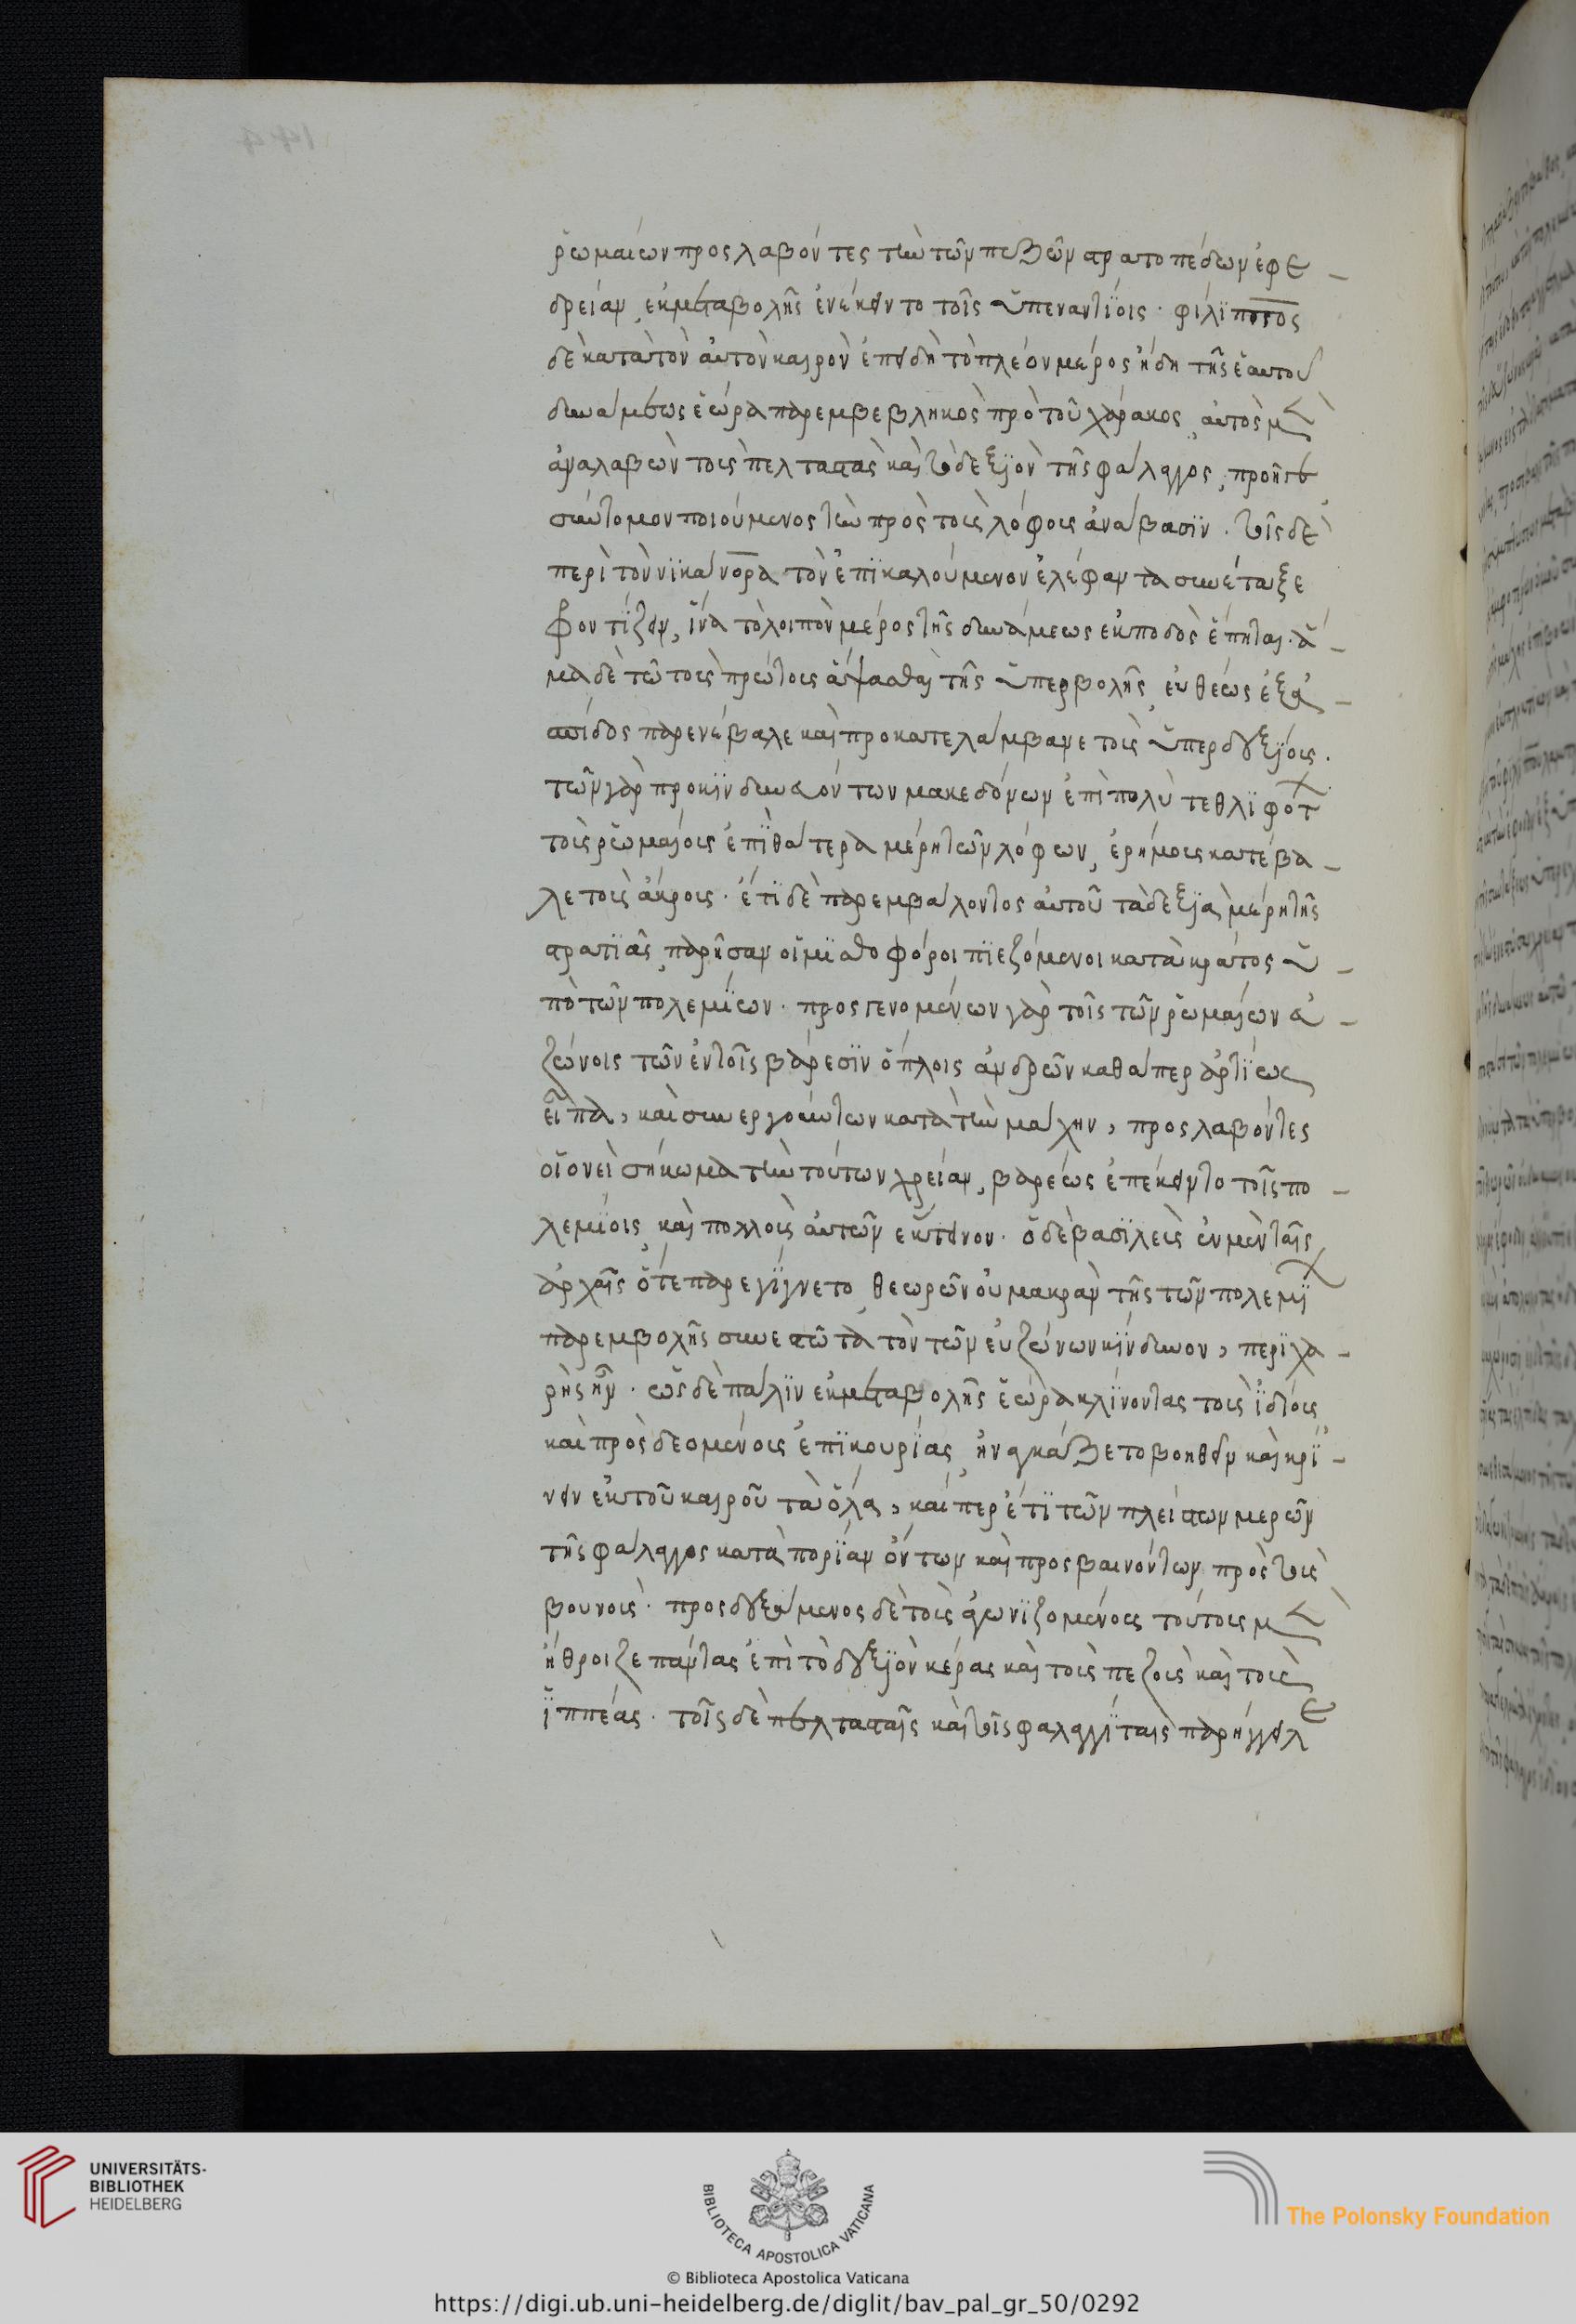 ῥωμαίων προσλαβόντες τὴν τῶν πεζῶν στρατοπέδων ἐφε-
δρείαν, ἐκμεταβολῆς ἐνέκειντο τοῖς ὑπεναντίοις. φίλιππος
δὲ κατὰ τὸν αὐτὸν καιρὸν ἐπειδὴ τὸ πλέον μέρος ἤδη τῆς ἑαυτοῦ
δυνάμεως ἑώρα παρεμβεβληκὸς πρὸ τοῦ χάρακος, αὐτὸς μὲν
ἀναλαβὼν τοὺς πελταστὰς καὶ τὸ δεξιὸν τῆς φάλαγγος, προῆγε
σύντομον ποιούμενος τὴν πρὸς τοὺς λόφους ἀνάβασιν. τοῖς δὲ
περὶ τὸν νικάνορα τὸν ἐπικαλούμενον ἐλέφαντα συνέταξε
φροντίζειν, ἵνα τὸ λοιπὸν μέρος τῆς δυνάμεως ἐκποδὸς ἕπηται. ἅ-
μα δὲ τῶ τοὺς πρώτους ἅψασθαι τῆς ὑπερβολῆς, εὐθέως ἐξ ἀ-
σπίδος παρενέβαλε καὶ προκατελάμβανε τοὺς ὑπερδεξίους.
τῶν γὰρ προκινδυνευόντων μακεδόνων ἐπιπολὺ τεθλιφότων
τοὺς ῥωμαίους ἐπὶ θάτερα μέρη τῶν λόφων, ἐρήμους κατέβα-
λε τοὺς ἄκρους. ἔτι δὲ παρεμβάλλοντος αὐτοῦ τὰ δεξιὰ μέρη τῆς
στρατιᾶς, παρῆσαν οἱ μισθοφόροι πιεζόμενοι κατὰ κράτος ὑ-
πὸ τῶν πολεμίων. προσγενομένων γὰρ τοῖς τῶν ῥωμαίων εὐ-
ζώνοις τῶν ἐν τοῖς βάρεσιν ὅπλοις ἀνδρῶν καθάπερ ἀρτίως
εἶπα, καὶ συνεργούντων κατὰ τὴν μάχην, προσλαβόντες
οἱονεὶ σήκωμα τὴν τούτων χρείαν, βαρέως ἐπέκειντο τοῖς πο-
λεμίοις, καὶ πολλοὺς αὐτῶν ἔκτεινον. ὁ δὲ βασιλεὺς ἐν μὲν ταῖς
ἀρχαῖς ὅτε παρεγίγνετο, θεωρῶν οὐ μακρὰν τῆς τῶν πολεμίων
παρεμβολῆς συνεστῶτα τὸν τῶν εὐζώνων κίνδυνον, περιχα-
ρὴς ἦν. ὡς δὲ πάλιν ἐκμεταβολῆς ἑώρα κλίνοντας τοὺς ἰδίους
καὶ προσδεομένους ἐπικουρίας, ἠναγκάζετο βοηθεῖν καὶ κρί-
νειν ἐκ τοῦ καιροῦ τὰ ὅλα, καίπερ ἔτι τῶν πλείστων μερῶν
τῆς φάλαγγος κατὰ πορίαν ὄντων καὶ προσβαινόντων πρὸς τοὺς
βουνούς. προσδεξάμενος δὲ τοὺς ἀγωνιζομένους τούτους μὲν
ἥθροιζε πάντας ἐπὶ τὸ δεξιὸν κέρας καὶ τοὺς πεζοὺς καὶ τοὺς
ἱππέας. τοῖς δὲ πελτασταῖς καὶ τοῖς φαλαγγίταις παρήγγειλε
UNIVERSITÄTS-
BIBLIOTHEK
HEIDELBERG
BIBLIOTECA APOSTOLICA VATICANA
The Polonsky Foundation
© Biblioteca Apostolica Vaticana
https://digi.ub.uni-heidelberg.de/diglit/bav_pal_gr_50/0292